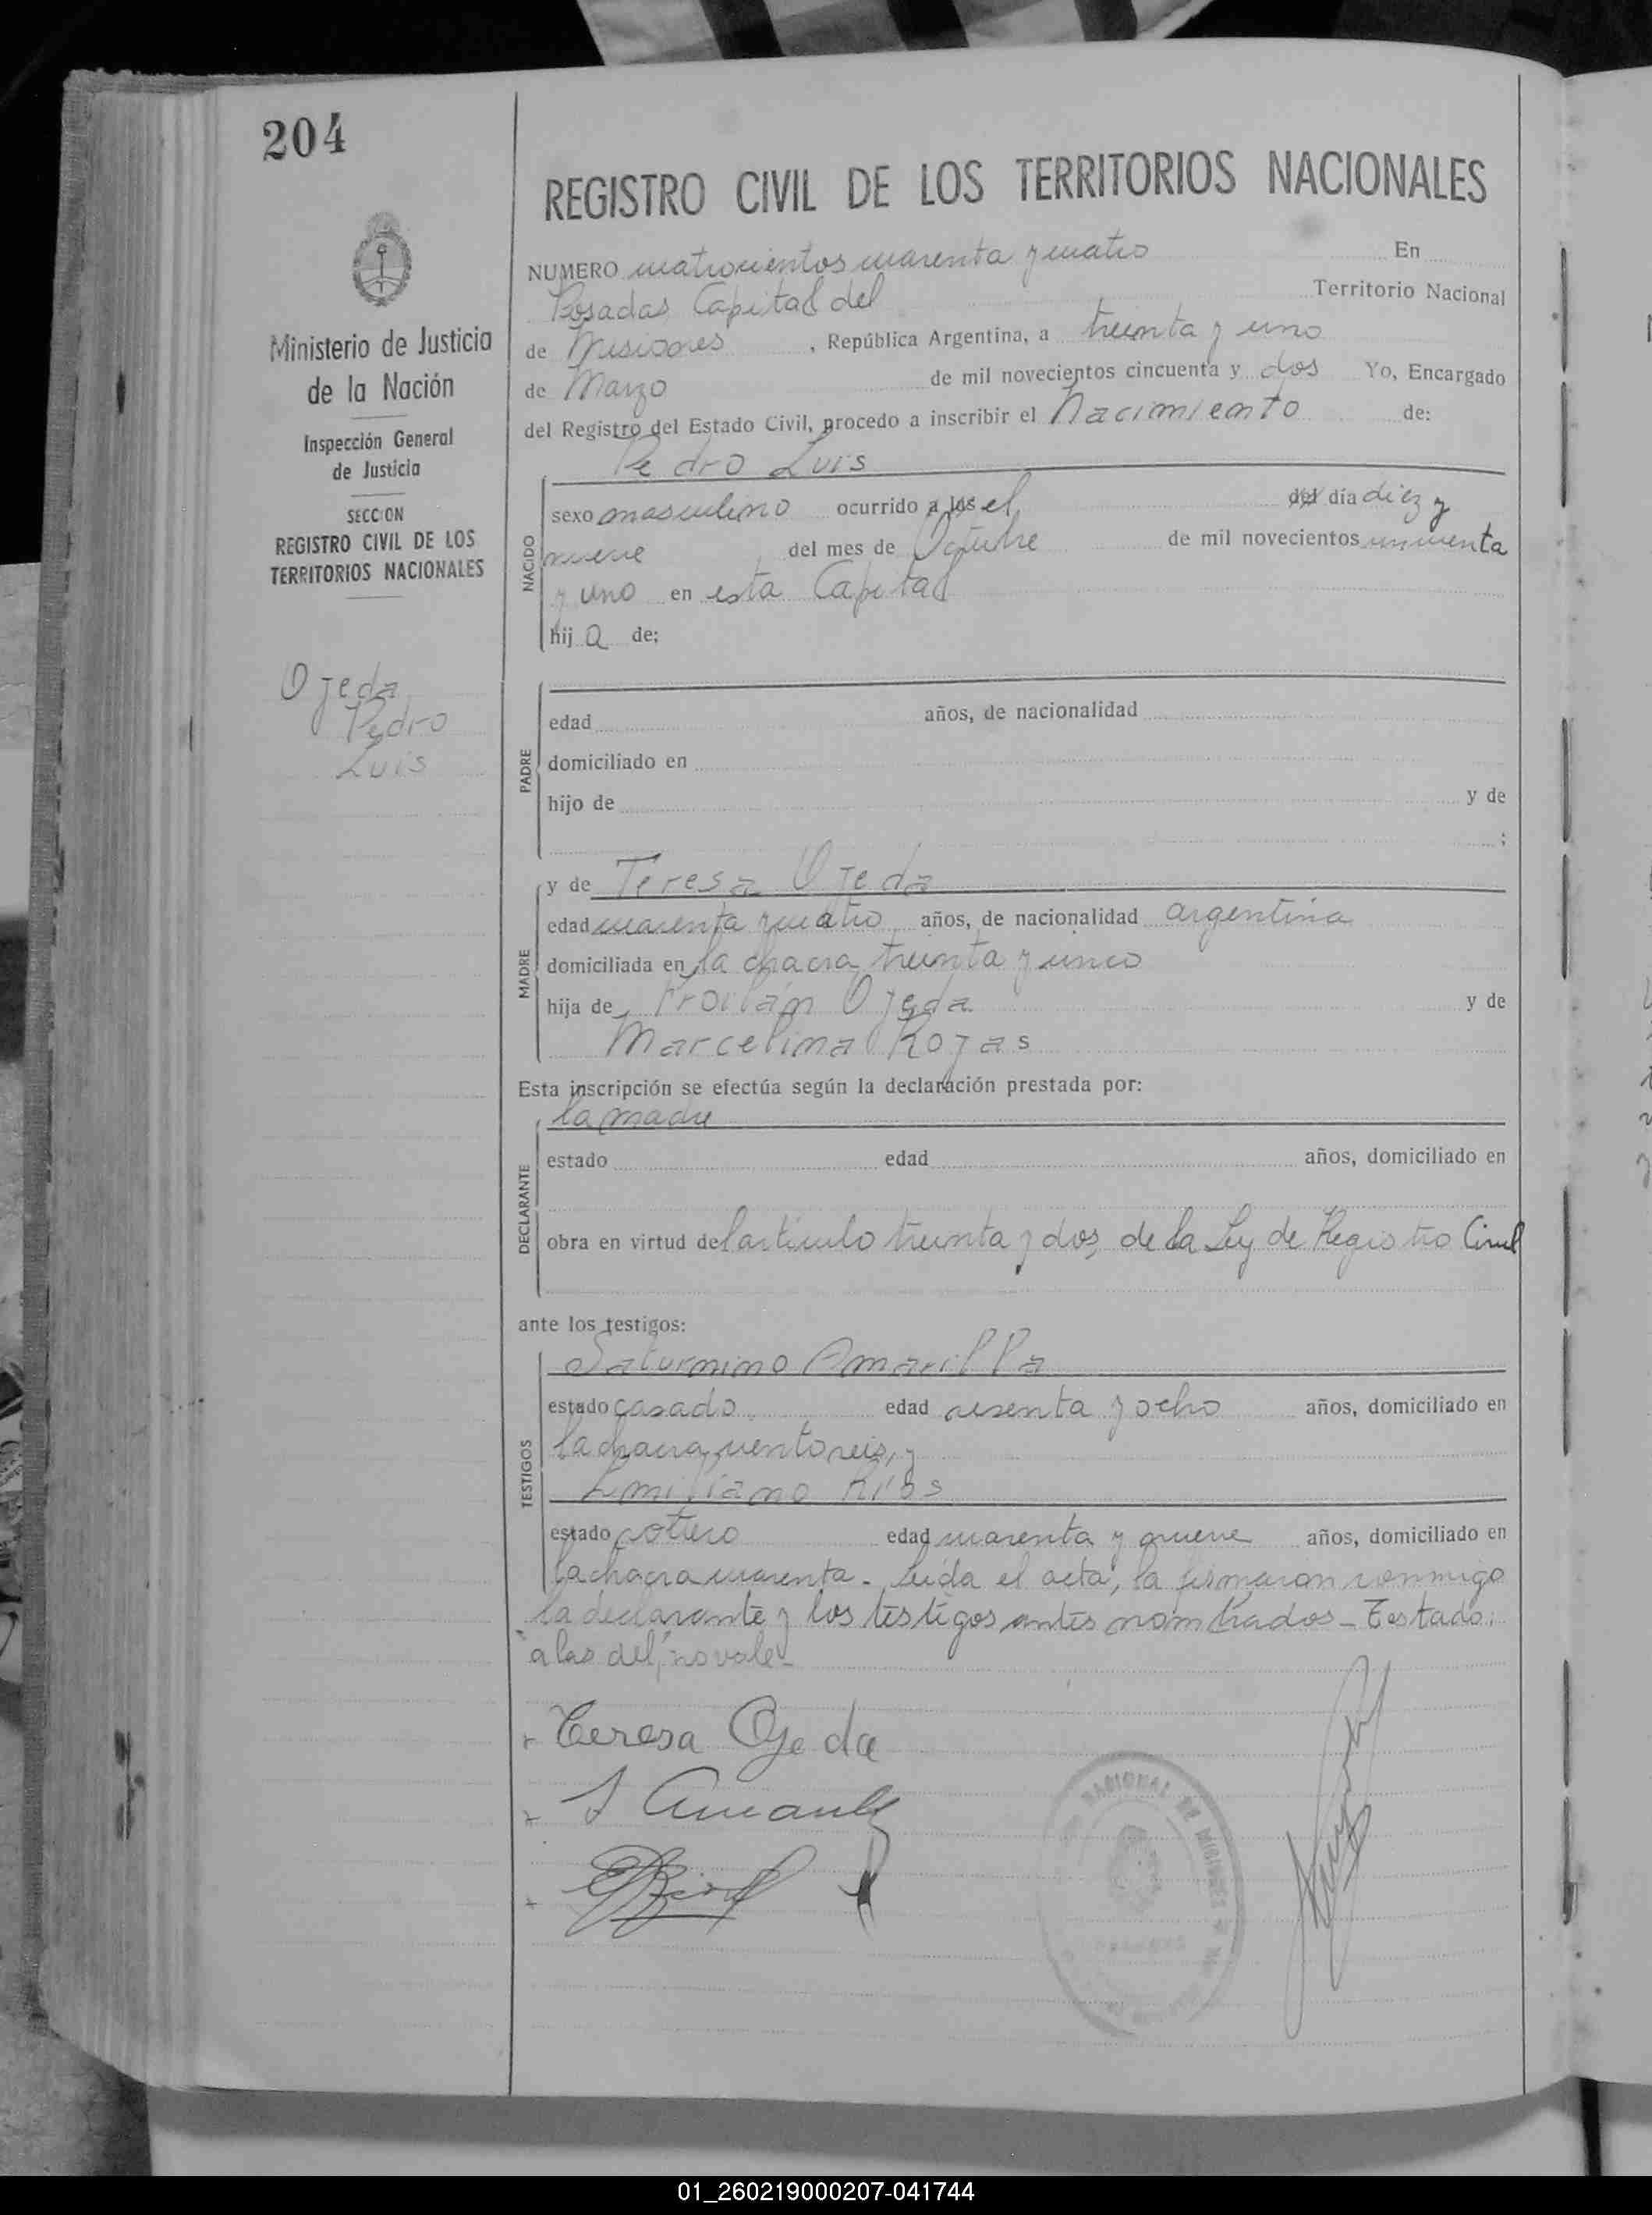 204
Ministerio de Justicia
de la Nación
Inspección General
de Justicia
SECCION
REGISTRO CIVIL DE LOS
TERRITORIOS NACIONALES
Ojeda
Pedro
Luis
REGISTRO CIVIL DE LOS TERRITORIOS NACIONALES
NUMERO cuatrocientos cuarenta y cuatro En
Posadas Capital del Territorio Nacional
de Misiones, República Argentina, a treinta y uno
de Marzo de mil novecientos cincuenta y dos Yo, Encargado
del Registro del Estado Civil, procedo a inscribir el Nacimiento de:
Pedro Luis
NACIDO
sexo masculino ocurrido a las el del día diez y
nueve del mes de Octubre de mil novecientos cincuenta
y uno en esta Capital
hij a de:
PADRE
edad años, de nacionalidad
domiciliado en
hijo de y de
;
MADRE
y de Teresa Ojeda
edad cuarenta y cuatro años, de nacionalidad argentina
domiciliada en la chacra treinta y uno
hija de Froilán Ojeda y de
Marcelina Rojas
Esta inscripción se efectúa según la declaración prestada por:
la madre
DECLARANTE
estado edad años, domiciliado en
obra en virtud del artículo treinta y dos, de la Ley de Registro Civil
ante los testigos:
TESTIGOS
Saturnino Amarilla
estado casado edad sesenta y ocho años, domiciliado en
la chacra ciento seis, y
Emiliano Ríos
estado soltero edad cuarenta y nueve años, domiciliado en
la chacra cuarenta. Leída el acta, la firmaron conmigo
la declarante y los testigos antes nombrados - Testado:
"a las del", no vale.
Teresa Ojeda
NACIONAL DE MISIONES
01_260219000207-041744